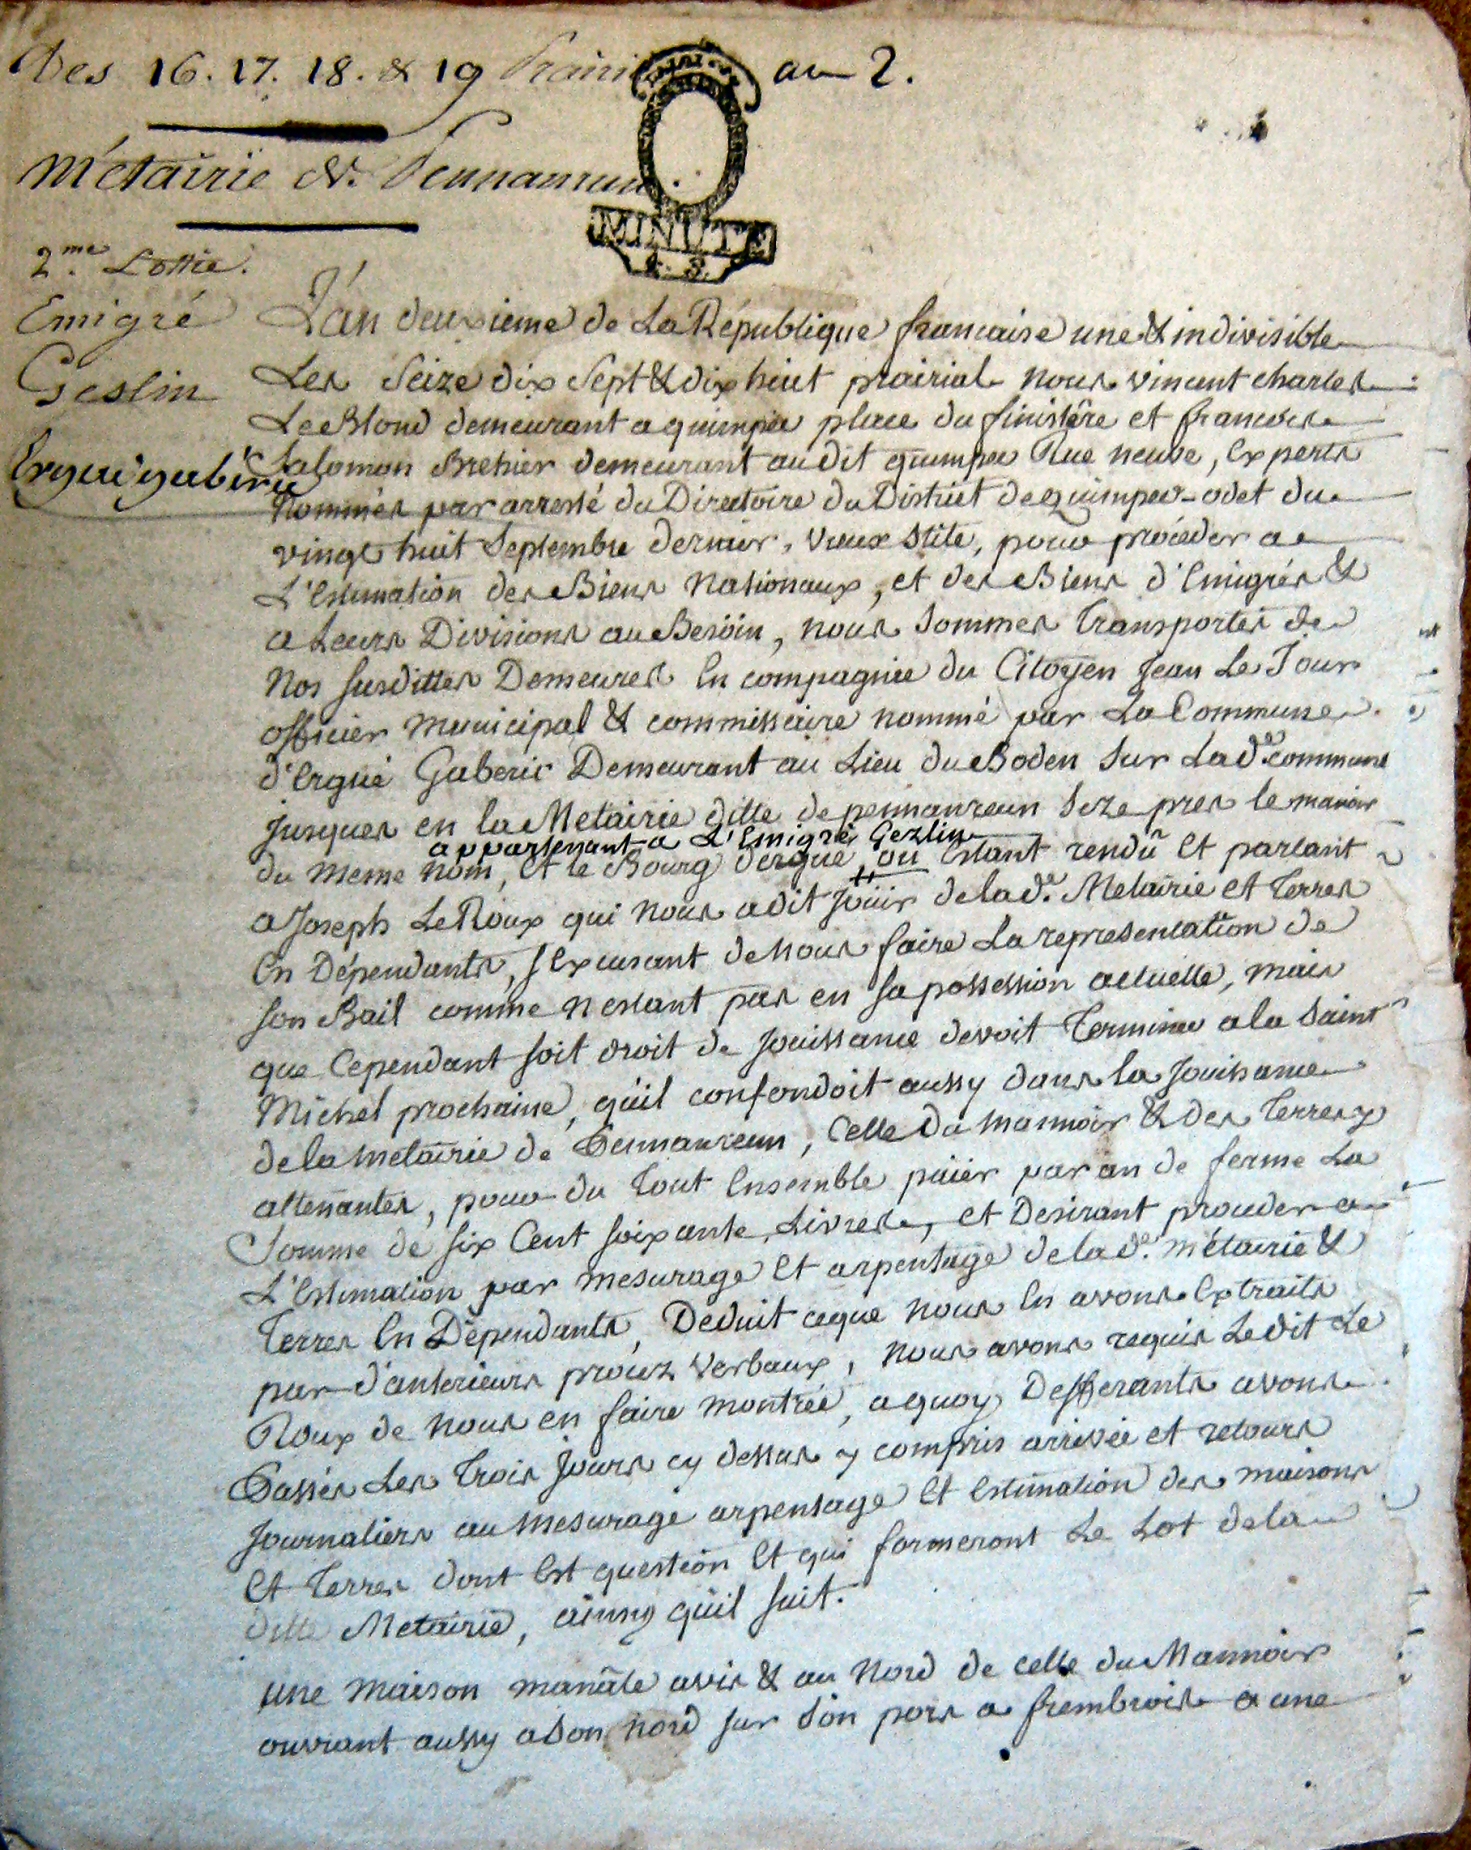 Des 16. 17. 18. & 19 Prairial an 2.
Métairie de Pennanrun.
MINUTE
4. S.
2.me Lottie.
Emigré
Geslin
Ergué gaberic
L'an deuxieme de La République francaise une & indivisible
Les Seize dix Sept & dix huit prairial nous vincent charles
LeBlond demeurant a quimper place du finistêre et francois
Salomon Brehier demeurant audit quimper Rue neuve, Experts
Nommés par arresté du Directoire du District de quimper-odet du
vingt huit Septembre dernier, vieux stile, pour procéder a
L'Estimation des Biens Nationaux, et des Biens d'Emigrés &
a Leurs Divisions au Besoin, nous Sommes Transportés de
Nos susdittes Demeures En compagnie du Citoyen Jean Le Jour
officier municipal & commissaire nommé par La Commune
d'Ergué Gaberic Demeurant au Lieu du Boden Sur La d.e commune
jusques en la Metairie ditte de pennanreun Size pres le manoir
appartenant a L'Emigré Gezlin
du meme nom, et le Bourg d'ergué, ou Estant rendu Et parlant
a Joseph Le Roux qui nous a dit jouir de la d.e Metairie et Terres
En Dépendants, s'Excusant de Nous faire La representation de
son Bail comme n'estant pas en sa possession actuelle, mais
que Cependant soit droit de jouissance devoit Terminer a la Saint
Michel prochaine, qu'il confondoit aussy dans la jouissance
de la metairie de Pennanreun, Celle du mannoir & des Terres y
attenantes, pour du Tout Ensemble paiër par an de ferme La
Somme de six Cent soixante Livres, et Desirant proceder a
L'Estimation par mesurage Et arpentage de la d.e métairie &
Terres En Dépendants, Deduit ceque nous En avons Extraits
par d'anterieurs procez verbaux, nous avons requis Ledit Le
Roux de nous en faire montrée, a quoy Defferants avons
Passés Les Trois jours cy dessus y compris arrivée et retours
journaliers au mesurage arpentage Et Estimation des maisons
Et Terres dont Est question Et qui formeront Le Lot de la
ditte Metairie, ainsy qu'il suit.
une maison manale avis & au Nord de celle du Mannoir
ouvrant aussy a Son nord sur Son pors a frembrois a une